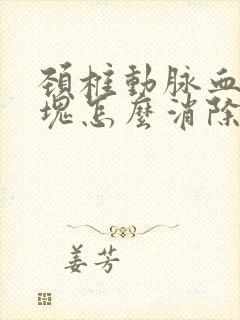 頚椎動脉血
塊怎麼消除
姜芳